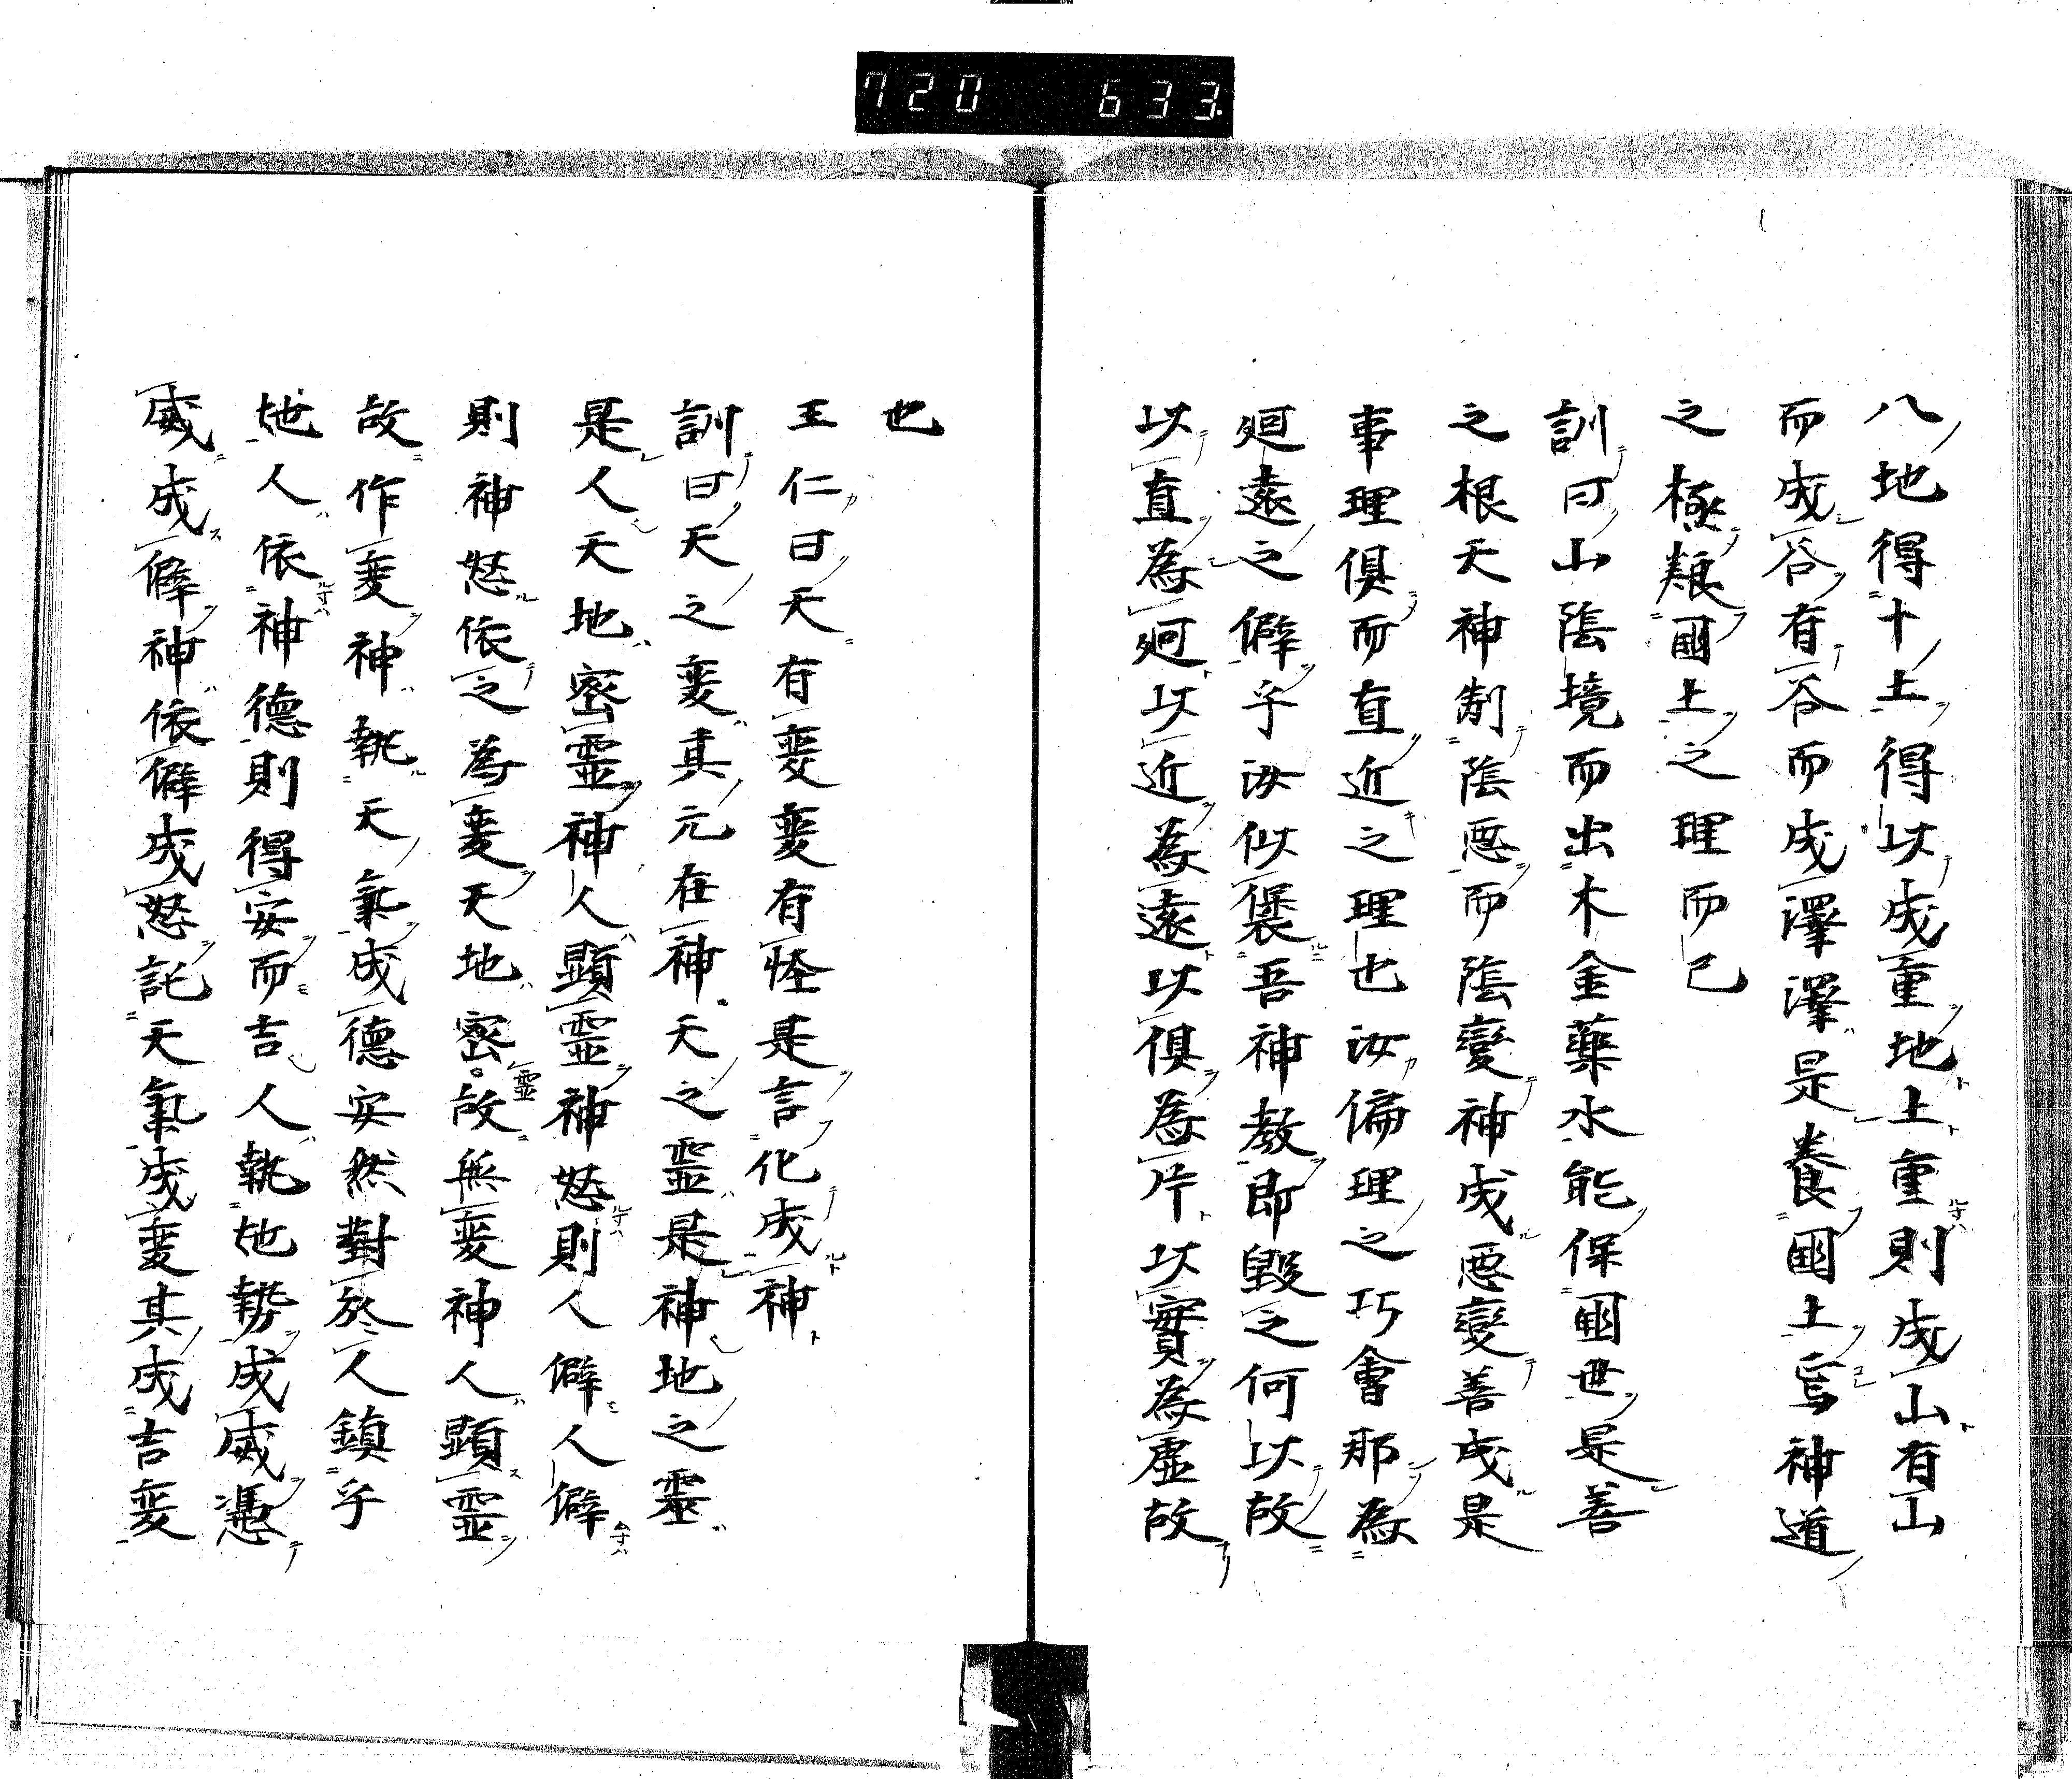 720 633
八地得十土得以成重地土重則成山有山
而成谷有谷而成澤澤是養國土寫神道
之極類國土之理而已
訓曰山陰境而出木金藥水能保國世是善
之根天神制陰惡而陰變神成惡變善成是
事理俱而直近之理也汝偏理之巧會那為
廻遠之僻乎汝似褒吾神教即毀之何以故
以直為廻以近為遠以俱為片以實為虛故
也
王仁曰天有変変有怪是言化成神
訓曰天之変其元在神天之靈是神地之靈
是人天地密靈神人顯靈神怒則人僻人僻
則神怒依之為変天地密靈故無変神人顯靈
故作変神執天氣成德安然對於人鎮乎
地人依神德則得安而吉人執地勢成威憑
威成僻神依僻成怒託天氣成変其成吉変